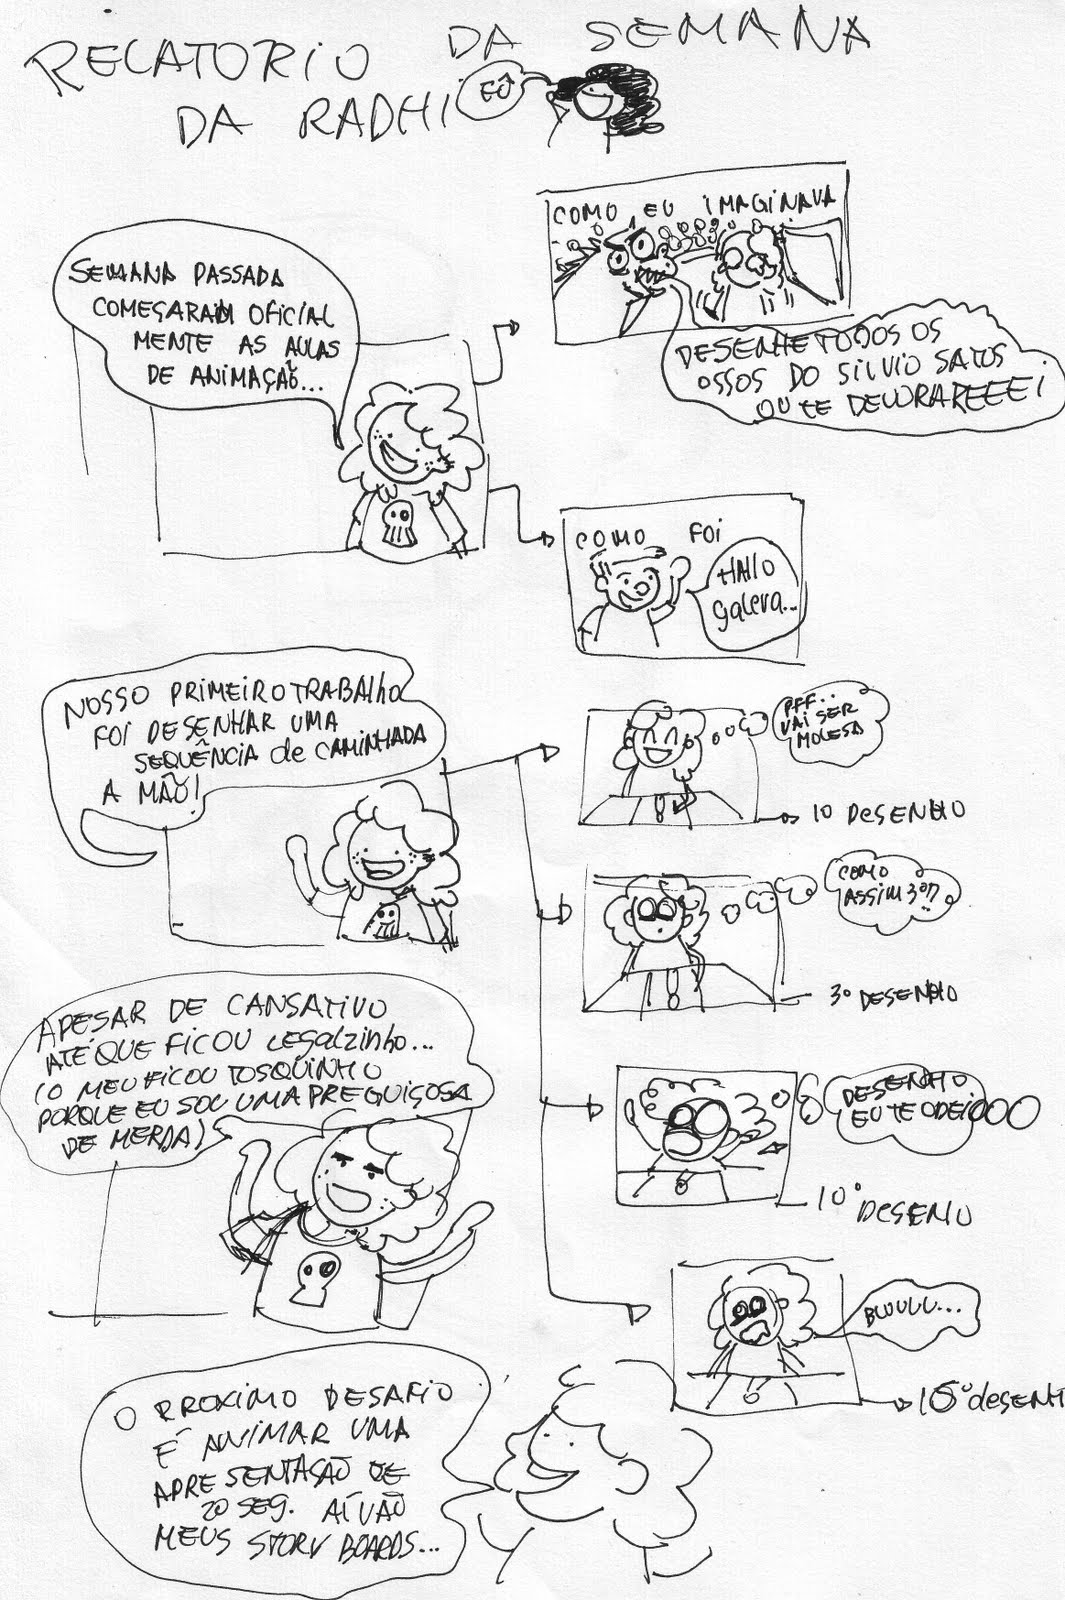 RELATORIO DA SEMANA
DA RADHI
EÔ
SEMANA PASSADA
COMEÇARAM OFICIAL
MENTE AS AULAS
DE ANIMAÇÃO...
COMO EU IMAGINAVA
DESENHE TODOS OS
OSSOS DO SILVIO SATOS
OU TE DEVORAREEEI
COMO FOI
HALLO
galera...
NOSSO PRIMEIRO TRABALHO
FOI DESENHAR UMA
SEQUÊNCIA de CAMINHADA
A MÃO!
PFF...
VAI SER
MOLESA
1º DESENHO
COMO
ASSIM 3º??
3º DESENHO
APESAR DE CANSATIVO
ATÉ QUE FICOU LEGALZINHO...
(O MEU FICOU TOSQUINHO
PORQUE EU SOU UMA PREGUIÇOSA
DE MERDA)
DESENHO
EU TE ODEIOOOO
10º DESENHO
BLUULL...
16º desenh
O PROXIMO DESAFIO
É ANIMAR UMA
APRESENTASÃO DE
20 SEG. AÍ VÃO
MEUS STORY BOARDS...